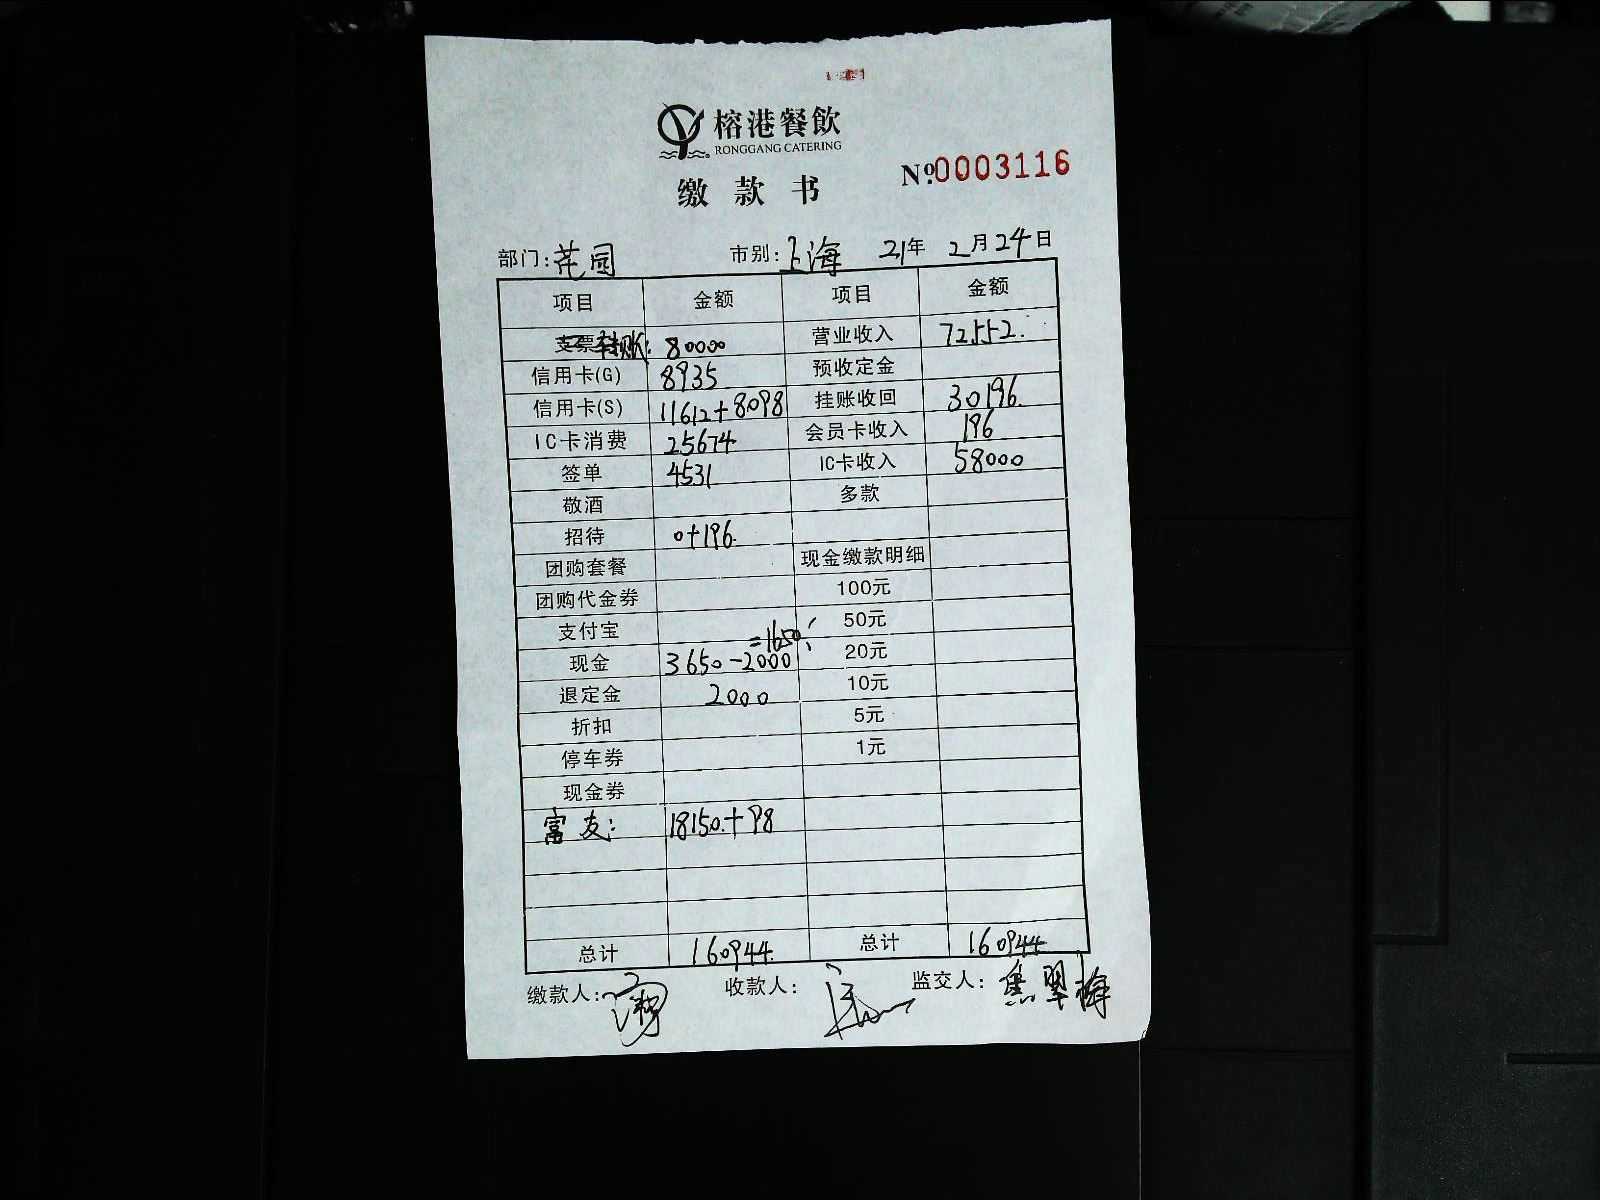 榕港餐飲
RONGGANG CATERING
№0003116
缴款书
部门:花园 市别:上海 21年 2月24日
项目 金额 项目 金额
支票转账: 80000 营业收入 72552.
信用卡(G) 8935 预收定金
信用卡(S) 11612+8098 挂账收回 30196.
IC卡消费 25674 会员卡收入 196
签单 4531 IC卡收入 58000
敬酒 多款
招待 0+196.
团购套餐 现金缴款明细
团购代金券 100元
支付宝 50元
=1650
现金 3650-2000 20元
退定金 2000 10元
折扣 5元
停车券 1元
现金券
富友: 18150.+98
总计 160944. 总计 160944
缴款人: 收款人: 监交人:焦翠梅